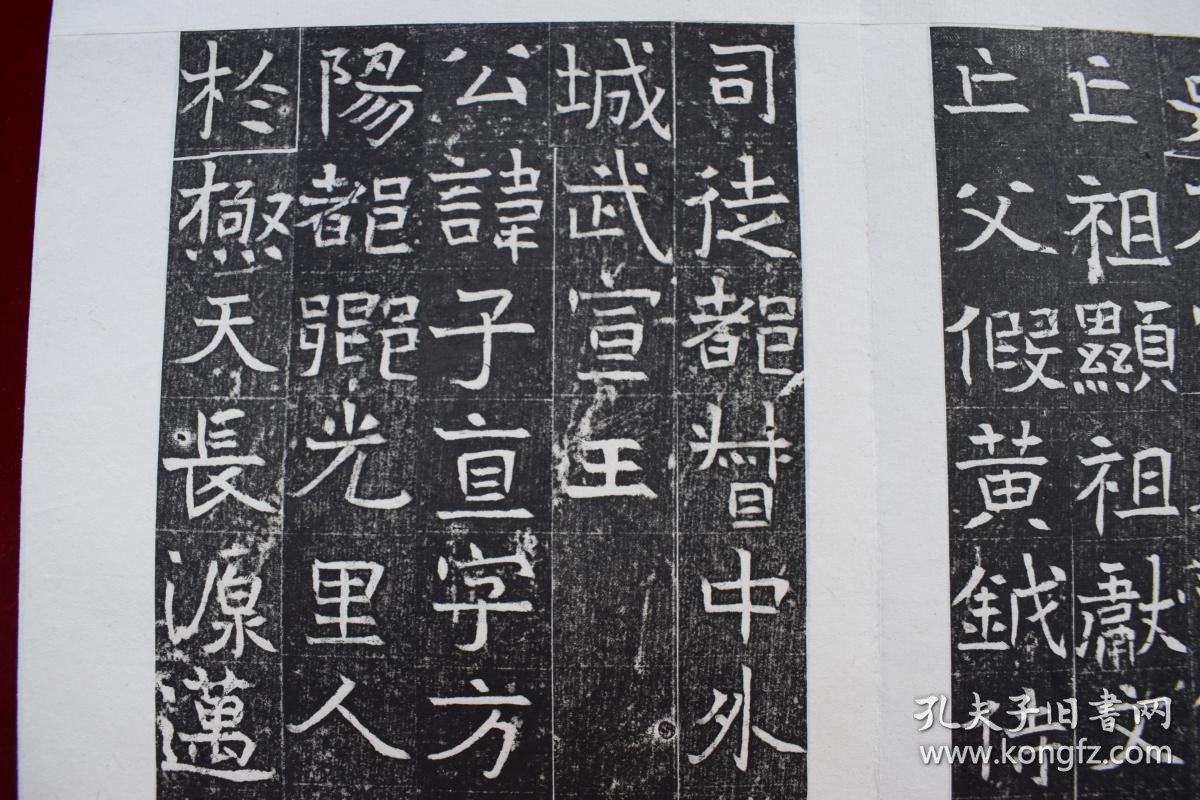 亡祖顯祖獻文
亡父假黃鉞侍
司徒都督中外
城武宣王
公諱子直字方
陽都鄉光里人
於極天長源邁
孔夫子旧书网
www.kongfz.com